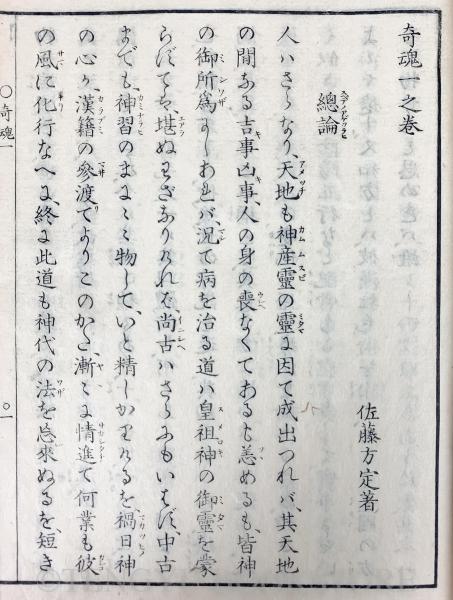 奇魂一之卷
佐藤方定著
總論
人ハさらなり、天地も神産靈の靈に因て成出つれバ、其天地
の間なる吉事凶事、人の身の喪なくてあるも恙めるも、皆神
の御所爲にしあれバ、況て病を治る道ハ皇祖神の御靈を蒙
らずてハ、堪ぬわざなりけれど、尚古ハさらにもいはず、中古
までも、神習のまにまに物して、いと精しかりけるを、禍日神
の心か、漢籍の參渡てよりこのかた、漸々に情進て何業も彼
の風に化行なへに、終に此道も神代の法を忘來ぬるを、短き
〇奇魂一
〇一